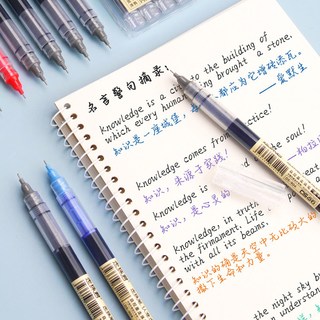 名言警句摘录:
knowledge is a city to the building of
which every human being brought a stone.
知识是一座城堡,
应为它增砖添瓦。
——爱默生
knowledge comes from
practice!
知识,来源于实践!
knowledge is
the soul!
知识,是心灵的
knowledge, in truth,
the firmament. Life
with all its beams.
知识的确是天空中无比
撒下生命和力量。
the night sky